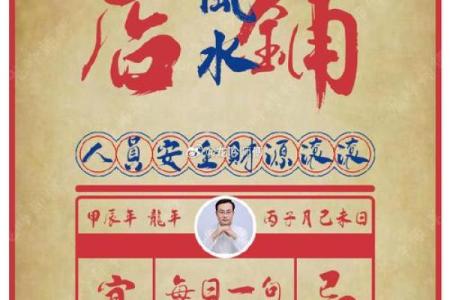 店風水鋪
人員安全財源滾滾
甲辰年 龍年 丙子月己未日
宜 每日一句 忌